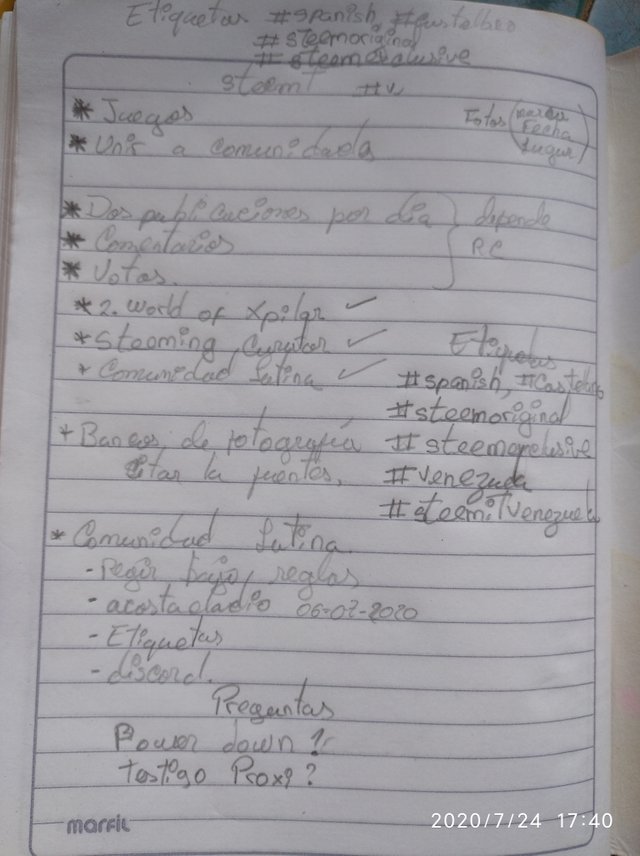 Etiquetas #spanish, #castellano
#steemoriginal
#steemexclusive
steemit #v
* Juegos
Fotos (marca
Fecha
Lugar)
* Unir a comunidades
* Dos publicaciones por dia } depende
* Comentarios RC
* Votos.
* 2. World of Xpilar ✓
* Steeming, Curator ✓ Etiquetas
* Comunidad Latina ✓ #spanish, #Castellano
#steemoriginal
* Bancos de fotografía #steemexclusive
Citar la fuentes, #venezuela
#steemitvenezuela
* Comunidad Latina.
- Regir, bajo, reglas
- acostaeladio 06-07-2020
- Etiquetas
- discord.
Preguntas
Power down?
Testigo Proxi?
marfil
2020/7/24 17:40